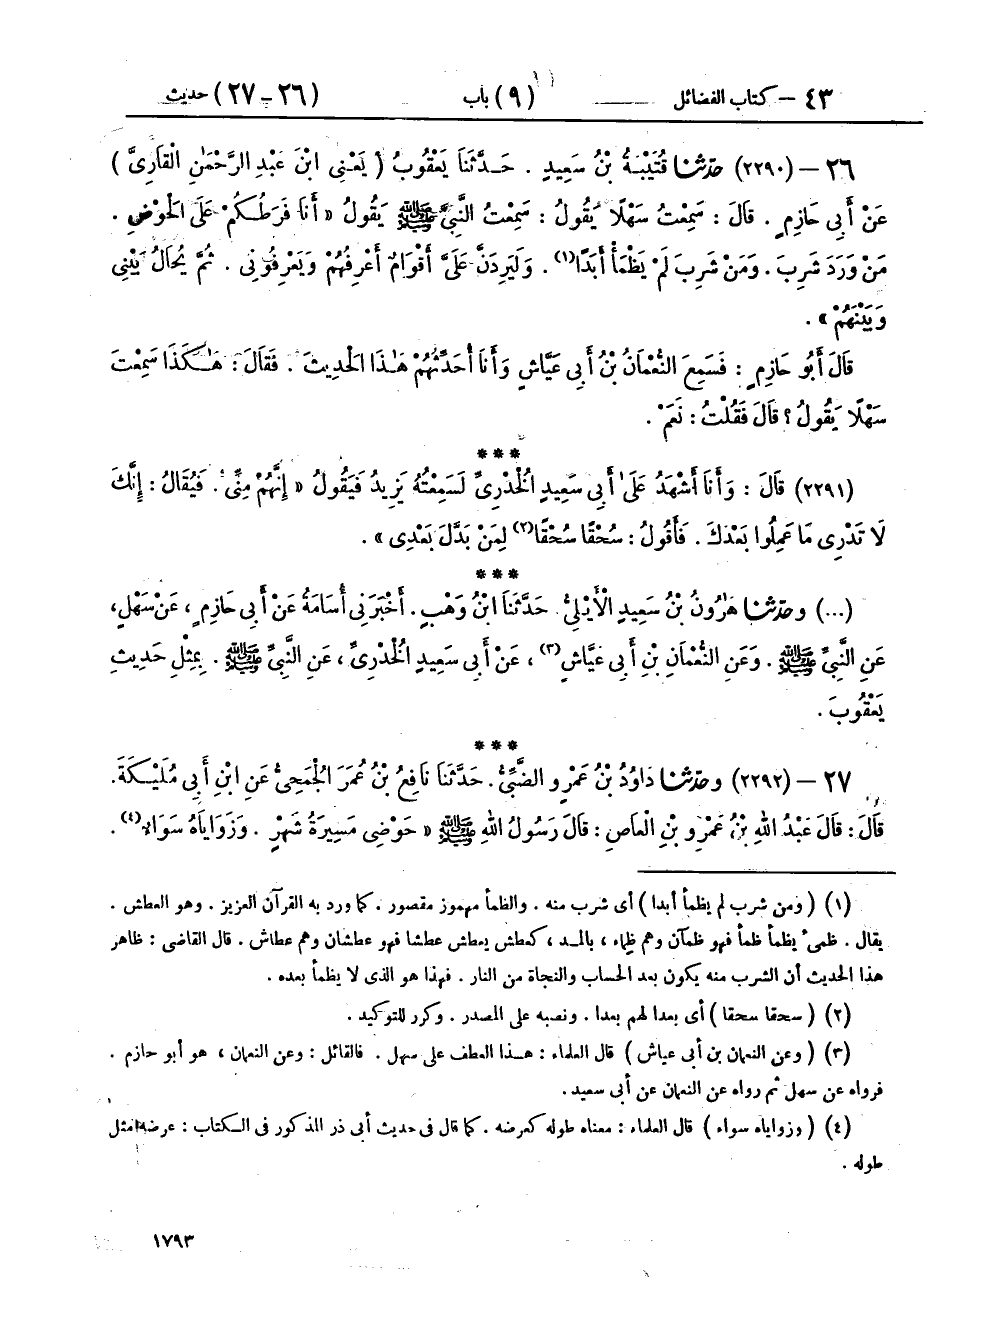 ٤٣ – كتاب الفضائل (٩) باب (٢٦-٢٧) حديث
٢٦ – (٢٢٩٠) حَدَّثَنَا قُتَيْبَةُ بْنُ سَعِيدٍ . حَدَّثَنَا يَعْقُوبُ ( يَعْنِى ابْنَ عَبْدِ الرَّحْمَٰنِ الْقَارِىَّ )
عَنْ أَبِى حَازِمٍ . قَالَ : سَمِعْتُ سَهْلًا يَقُولُ : سَمِعْتُ النَّبِيَّ ﷺ يَقُولُ « أَنَا فَرَطُكُمْ عَلَى الْحَوْضِ .
مَنْ وَرَدَ شَرِبَ . وَمَنْ شَرِبَ لَمْ يَظْمَأْ أَبَدًا(١) . وَلَيَرِدَنَّ عَلَىَّ أَقْوَامٌ أَعْرِفُهُمْ وَيَعْرِفُونِى . ثُمَّ يُحَالُ بَيْنِى
وَبَيْنَهُمْ » .
قَالَ أَبُو حَازِمٍ : فَسَمِعَ النُّعْمَانُ بْنُ أَبِى عَيَّاشٍ وَأَنَا أُحَدِّثُهُمْ هَٰذَا الْحَدِيثَ . فَقَالَ : هَٰكَذَا سَمِعْتَ
سَهْلًا يَقُولُ ؟ قَالَ فَقُلْتُ : نَعَمْ .
***
(٢٢٩١) قَالَ : وَأَنَا أَشْهَدُ عَلَىٰ أَبِى سَعِيدٍ الْخُدْرِىِّ لَسَمِعْتُهُ يَزِيدُ فَيَقُولُ « إِنَّهُمْ مِنِّى . فَيُقَالُ : إِنَّكَ
لَا تَدْرِى مَا عَمِلُوا بَعْدَكَ . فَأَقُولُ : سُحْقًا سُحْقًا(٢) لِمَنْ بَدَّلَ بَعْدِى » .
***
(...) وحَدَّثَنَا هَٰرُونُ بْنُ سَعِيدٍ الْأَيْلِىُّ . حَدَّثَنَا ابْنُ وَهْبٍ . أَخْبَرَنِى أُسَامَةُ عَنْ أَبِى حَازِمٍ ، عَنْ سَهْلٍ ،
عَنِ النَّبِيِّ ﷺ . وَعَنِ النُّعْمَانِ بْنِ أَبِى عَيَّاشٍ(٣) ، عَنْ أَبِى سَعِيدٍ الْخُدْرِىِّ ، عَنِ النَّبِيِّ ﷺ . بِمِثْلِ حَدِيثِ
يَعْقُوبَ .
***
٢٧ – (٢٢٩٢) وحَدَّثَنَا دَاوُدُ بْنُ عَمْرٍو الضَّبِّىُّ . حَدَّثَنَا نَافِعُ بْنُ عُمَرَ الْجُمَحِىُّ عَنِ ابْنِ أَبِى مُلَيْكَةَ .
قَالَ : قَالَ عَبْدُ اللهِ بْنُ عَمْرِو بْنِ الْعَاصِ : قَالَ رَسُولُ اللهِ ﷺ « حَوْضِى مَسِيرَةُ شَهْرٍ . وَزَوَايَاهُ سَوَاءٌ(٤) .
(١) ( ومن شرب لم يظمأ أبدا ) أى شرب منه . والظمأ مهموز مقصور . كما ورد به القرآن العزيز . وهو العطش .
يقال . ظمئ يظمأ ظمأ فهو ظمآن وهم ظماء ، بالمد ، كعطش يعطش عطشا فهو عطشان وهم عطاش . قال القاضى : ظاهر
هذا الحديث أن الشرب منه يكون بعد الحساب والنجاة من النار . فهذا هو الذى لا يظمأ بعده .
(٢) ( سحقا سحقا ) أى بعدا لهم بعدا . ونصبه على المصدر . وكرر للتوكيد .
(٣) ( وعن النعمان بن أبى عياش ) قال العلماء : هذا العطف على سهل . فالقائل : وعن النعمان ، هو أبو حازم .
فرواه عن سهل ثم رواه عن النعمان عن أبى سعيد .
(٤) ( وزواياه سواء ) قال العلماء : معناه طوله كعرضه . كما قال فى حديث أبى ذر المذكور فى الكتاب : عرضه مثل
طوله .
١٧٩٣